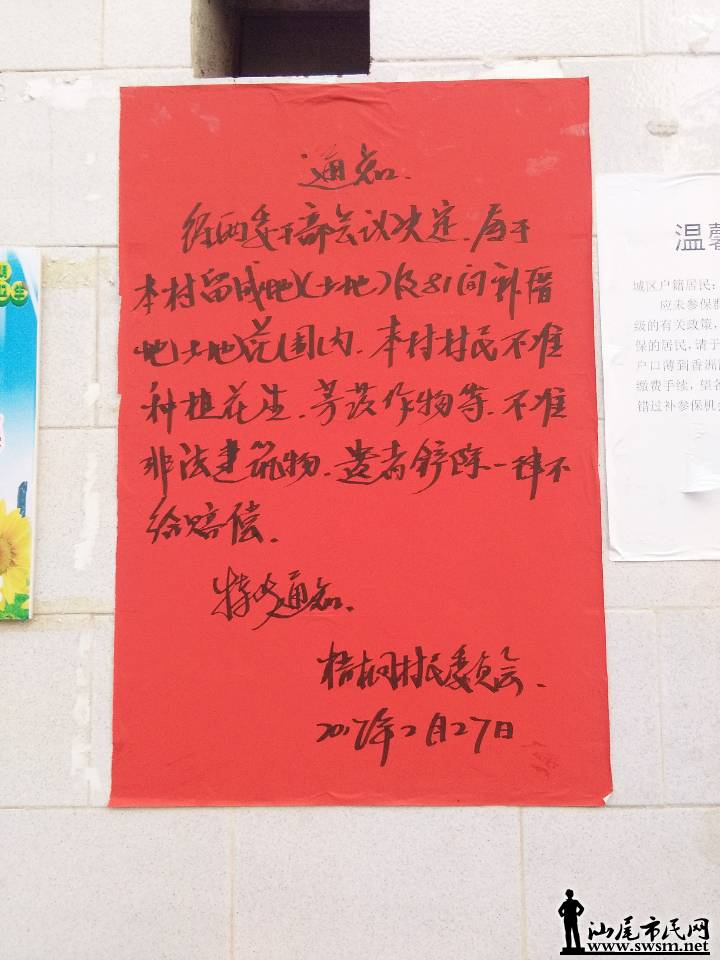 通知.
经两委干部会议决定.属于
本村留成地(土地)及81间补厝
地土地范围内.本村村民不准
种植花生.芋茨作物等.不准
非法建筑物.违者铲除一律不
给赔偿.
特此通知.
梧桐村民委员会.
2017年2月27日
温馨
城区户籍居民:
应未参保
级的有关政策,
保的居民,请于
户口薄到香洲
缴费手续,望各
错过补参保机会
汕尾市民网
www.swsm.net